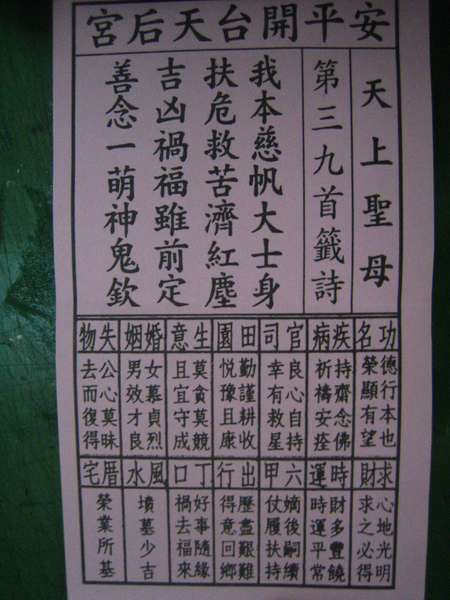 安平開台天后宮
天上聖母
第三九首籤詩
我本慈帆大士身
扶危救苦濟紅塵
吉凶禍福雖前定
善念一萌神鬼欽
功名
德行本也
榮顯有望
疾病
持齋念佛
祈禱安痊
官司
良心自持
幸有救星
田園
勤謹耕收
悅豫且康
生意
莫貪莫競
且宜守成
婚姻
女慕貞烈
男效才良
失物
公心莫昧
去而復得
求財
心地光明
求之必得
時運
財多豐饒
時運平常
六甲
嫡後嗣續
仗履扶持
出行
歷盡艱難
得意回鄉
丁口
好事隨緣
禍去福來
風水
墳墓少吉
厝宅
榮業所基